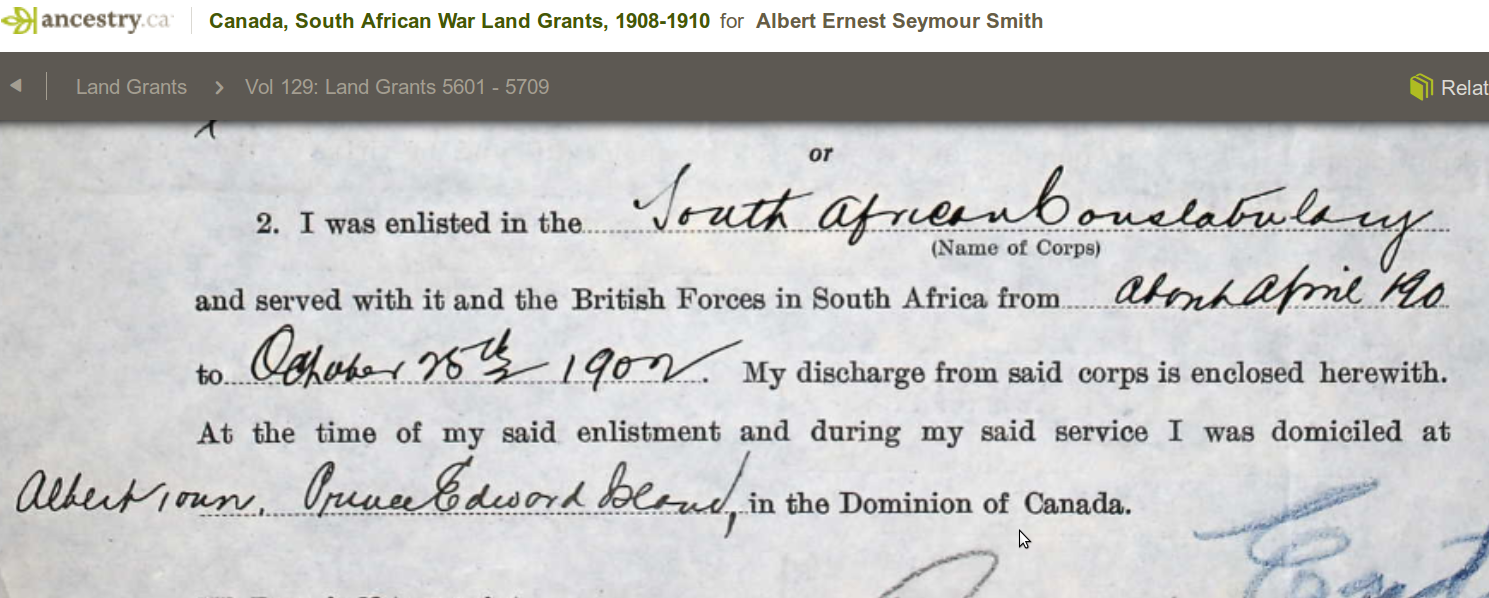 ancestry.ca Canada, South African War Land Grants, 1908-1910 for Albert Ernest Seymour Smith
Land Grants > Vol 129: Land Grants 5601 - 5709 Relat
or
2. I was enlisted in the South African Constabulary
(Name of Corps)
and served with it and the British Forces in South Africa from about April 190
to October 25th 1902. My discharge from said corps is enclosed herewith.
At the time of my said enlistment and during my said service I was domiciled at
Alberttown, Prince Edward Island, in the Dominion of Canada.